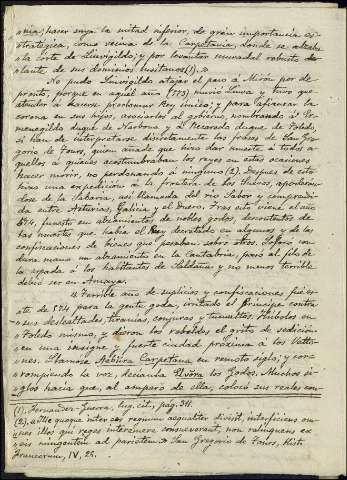 hacer suya la mitad inferior, de gran importancia es-
tratégica, como vecina de la Carpetania, donde se alzaba
la corte de Liuvigildo; y por levantar murallas robustas de-
lante de sus dominios lusitanos (1).»
No pudo Liuvigildo atajar el paso á Mirón por de
pronto, porque en aquel año (573) murió Liuva y tuvo que
atender á hacerse proclamar Rey único; y para afianzar la
corona en sus hijos, asociarlos al gobierno, nombrando á Er-
menegildo duque de Narbona y á Recaredo duque de Toledo,
si han de interpretarse discretamente las frases de San Gre-
gorio de Tours, quien añade que hizo dar muerte á todos a-
quellos á quienes acostumbraban los reyes en estas ocasiones
hacer morir, no perdonando á ninguno (2). Después de esto
hizo una expedición á la frontera de los Suevos, apoderán-
dose de la Sabaria, así llamada del río Sabor y comprendi-
da entre Asturias, Galicia y el Duero. Tras esto viene el año
574, funesto en alzamientos de nobles godos, descontentos de
las muertes que había el Rey decretado en algunos y de las
confiscaciones de bienes que pesaban sobre otros. Sofocó con
dura mano un alzamiento en la Cantabria, pasó al filo de
la espada á los habitantes de Saldaña y no menos terrible
debió ser en Amaya.
«Terrible año de suplicios y confiscaciones fué es-
te de 574 para la gente goda, irritado el Príncipe contra
sus deslealtades, tiranías, conjuras y tumultos. Hubolos en
Toledo mismo, y dieron los rebeldes el grito de sedición
en una insigne y fuerte ciudad próxima á los Vetto-
nes. Llamose Aebura Carpetana en remoto siglo; y cor-
rompiendo la voz, decianla Elvora los Godos. Muchos si-
glos hacia que, al amparo de ella, colocó sus reales con-
(1). Fernández-Guerra, lug. cit., pág. 311.
(2). «Ille quoque inter eos regnum aequaliter divisit, interficiens om-
nes illos qui reges interimere consueverant, non relinquens ex
eis mingentem ad parietem.» San Gregorio de Tours, Hist.
Francorum, IV, 38.